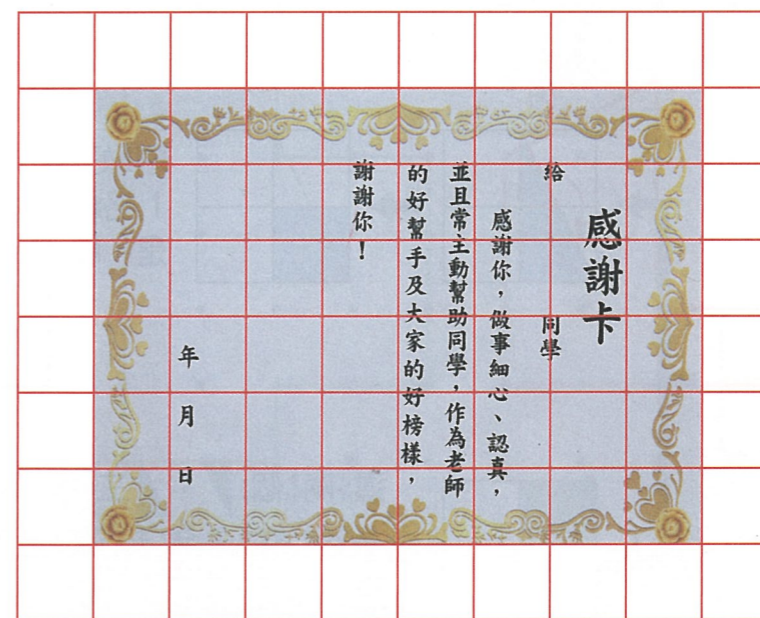 感謝卡
給　同學
感謝你，做事細心、認真，
並且常主動幫助同學，作為老師
的好幫手及大家的好榜樣，
謝謝你！
年　月　日